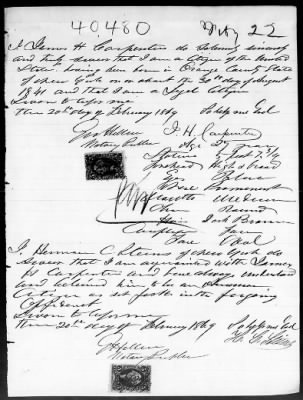 40480
22
I James H Carpenter do Solemnly sincerely
and truly swear that I am a Citizen of the United
States being born in Orange County State
of New York on or about the 20th day of August
1841 and that I am a Loyal Citizen
Sworn to before me
this 20th day of February 1869 So help me God
J. H. Carpenter
Notary Public
Age 27 Years
Stature 5 feet 7 3/4
Forehead High & Broad
Eyes Blue
Nose Prominent
Mouth Medium
Chin Round
Hair Dark Brown
Complexion Fair
Face Oval
I, Herman C. Stevens of New York do
swear that I am acquainted with James
H Carpenter and have always understood
and believed him to be an American
Citizen as set forth in the foregoing
Affidavit
Sworn to before me
this 20th day of February 1869 So help me God
Notary Public